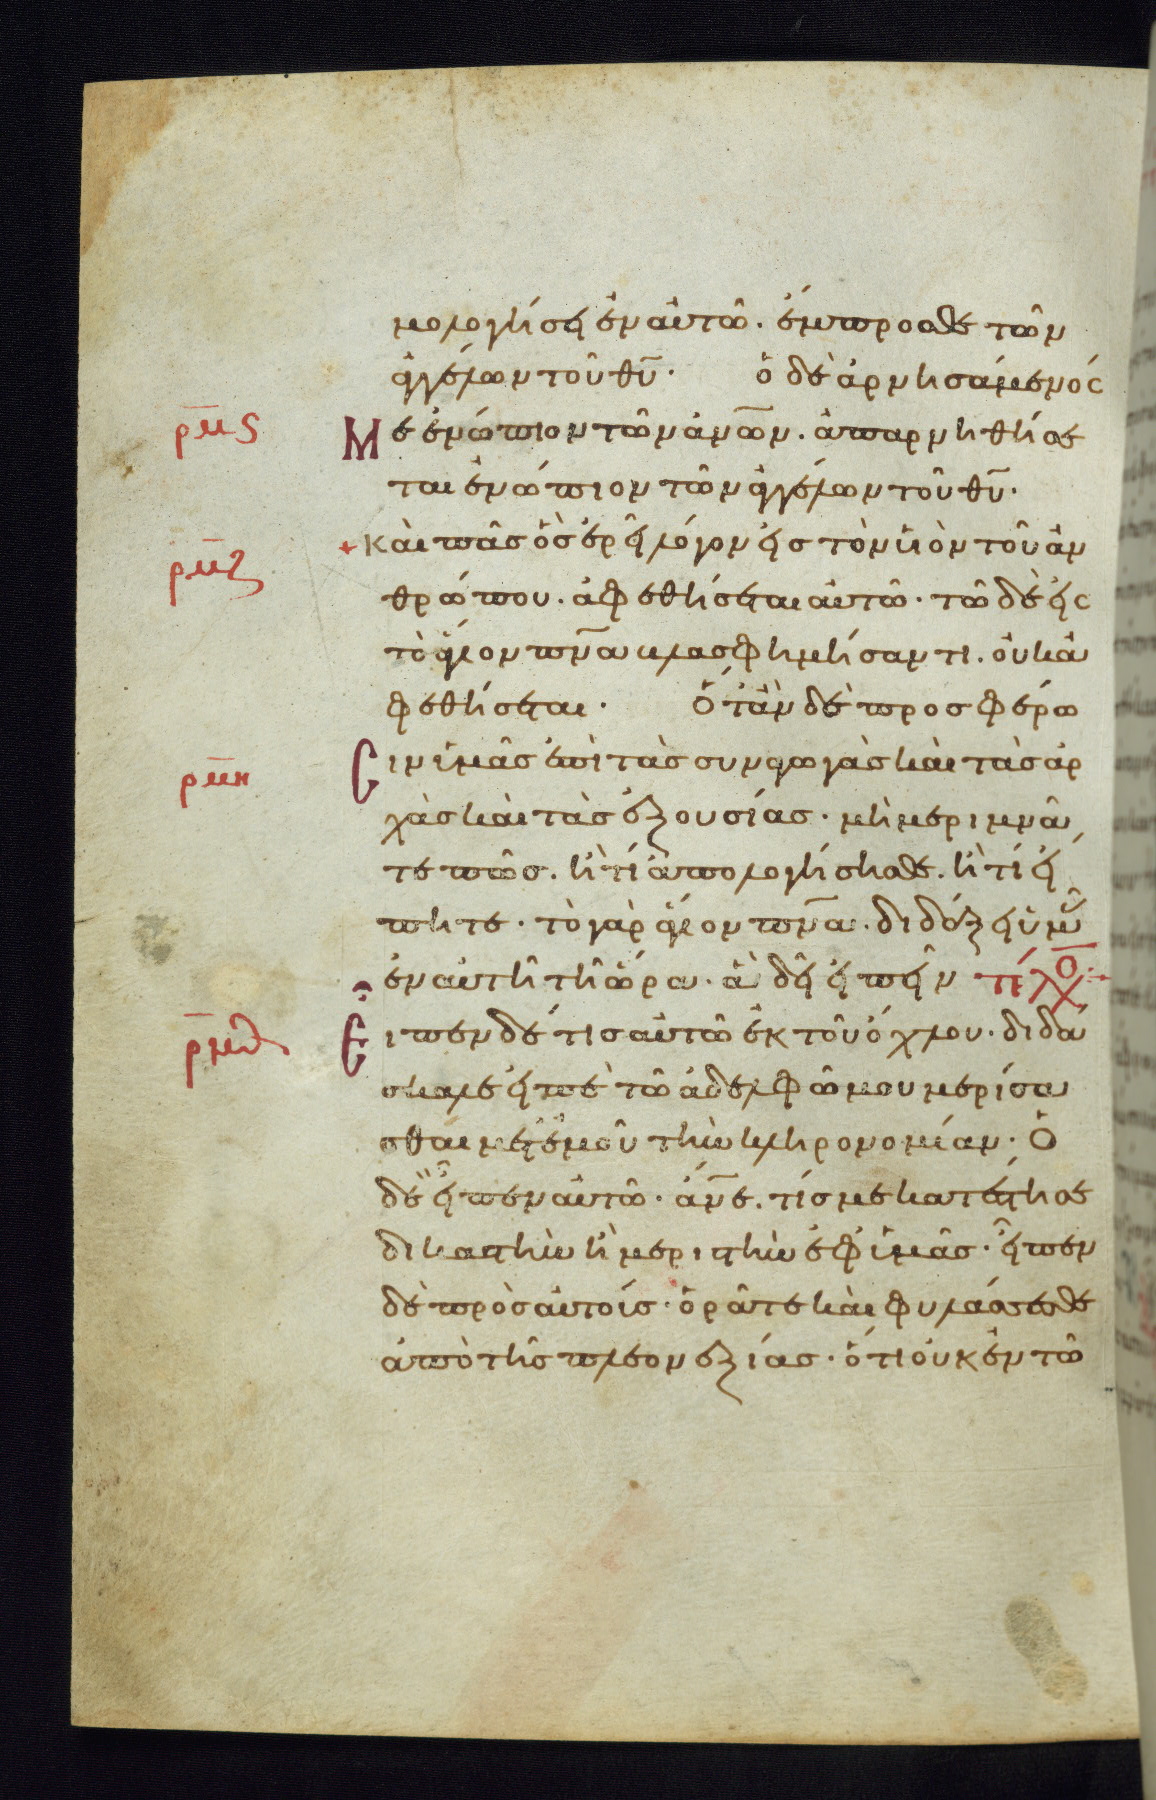 μολογήσει ἐν αὐτῶ. ἔμπροσθε τῶν
ἀγγέλων τοῦ θῦ· ὁ δὲ ἀρνησάμενός
ρμς Με ἐνώπιον τῶν ἀνῶν. ἀπαρνηθήσε
ται ἐνώπιον τῶν ἀγγέλων τοῦ θῦ·
ρμζ + Καὶ πᾶσ ὃσ ἐρεῖ λόγον εἰσ τὸν υἱὸν τοῦ ἀν
θρώπου. ἀφεθήσεται αὐτῶ· τῶ δὲ εἰς
τὸ ἅγιον πνα βλασφημήσαντι. οὐκ ἀ
φεθήσεται· Ὅταν δὲ προσφέρω
ρμη Cιν ὑμᾶσ ἐπὶ τὰσ συναγωγὰσ καὶ τὰσ ἀρ
χὰσ καὶ τὰσ ἐξουσίασ· μὴ μεριμνᾶ
τε πῶσ. ἢ τί ἀπολογήσησθε. ἢ τί εἴ
πητε· τὸ γὰρ ἅγιον πνα. διδάξει ὑμᾶ
ἐν αὐτῆ τῆ ὥρα. ἃ δεῖ εἰπεῖν
ρμθ Εἶπεν δέ τισ αὐτῶ ἐκ τοῦ ὄχλου· διδά
σκαλε εἰπὲ τῶ ἀδελφῶ μου μερίσα
σθαι μετ' ἐμοῦ τὴν κληρονομίαν· Ὁ
δὲ εἶπεν αὐτῶ· ἄνε. τίσ με κατέστησε
δικαστὴν ἢ μεριστὴν ἐφ' ὑμᾶσ· εἶπεν
δὲ πρὸσ αὐτούσ· ὁρᾶτε καὶ φυλάσσεσθε
ἀπὸ τῆσ πλεονεξίασ· ὅτι οὐκ ἐν τῶ